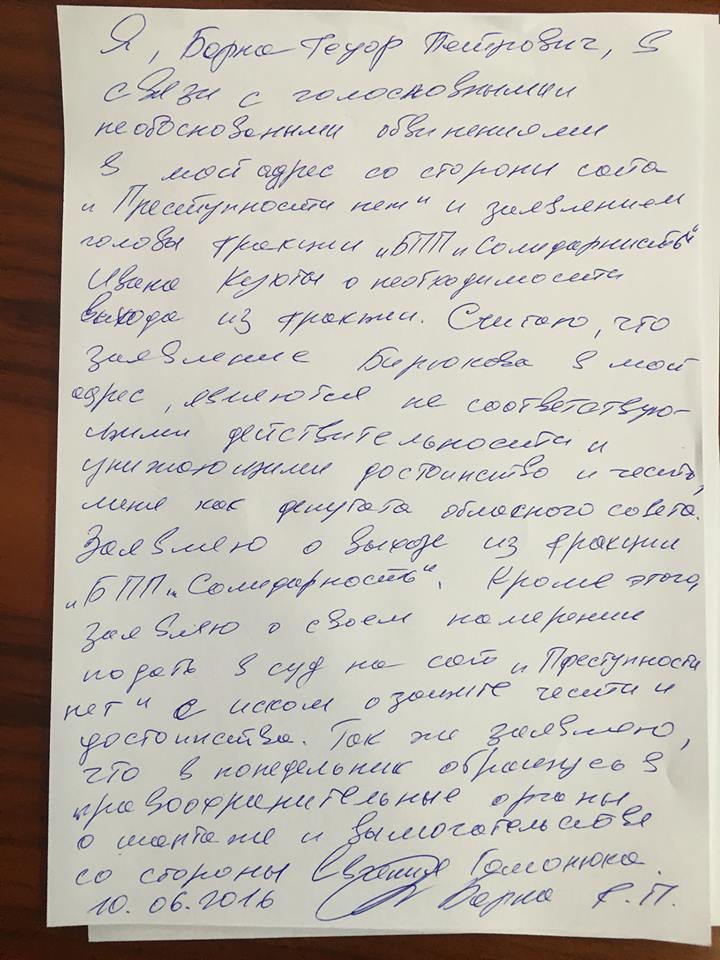 Я, Барна Федор Петрович, в
связи с голословными
необоснованными обвинениями
в мой адрес со стороны сайта
„Преступности нет" и заявлением
головы фракции „БПП „Солидарнисть"
Ивана Куюты о необходимости
выхода из фракции. Считаю, что
заявление Бирюкова в мой
адрес, являются не соответствую-
щими действительности и
унижающими достоинство и честь,
меня как депутата обласного совета.
Заявляю о выходе из фракции
„БПП „Солидарность". Кроме этого,
заявляю о своем намерении
подать в суд на сайт „Преступности
нет" с иском о защите чести и
достоинства. Так же заявляю,
что в понедельник обращусь в
правоохранительные органы
о шантаже и вымогательстве
со стороны Гамонюка.
10.06.2016 Барна Ф.П.